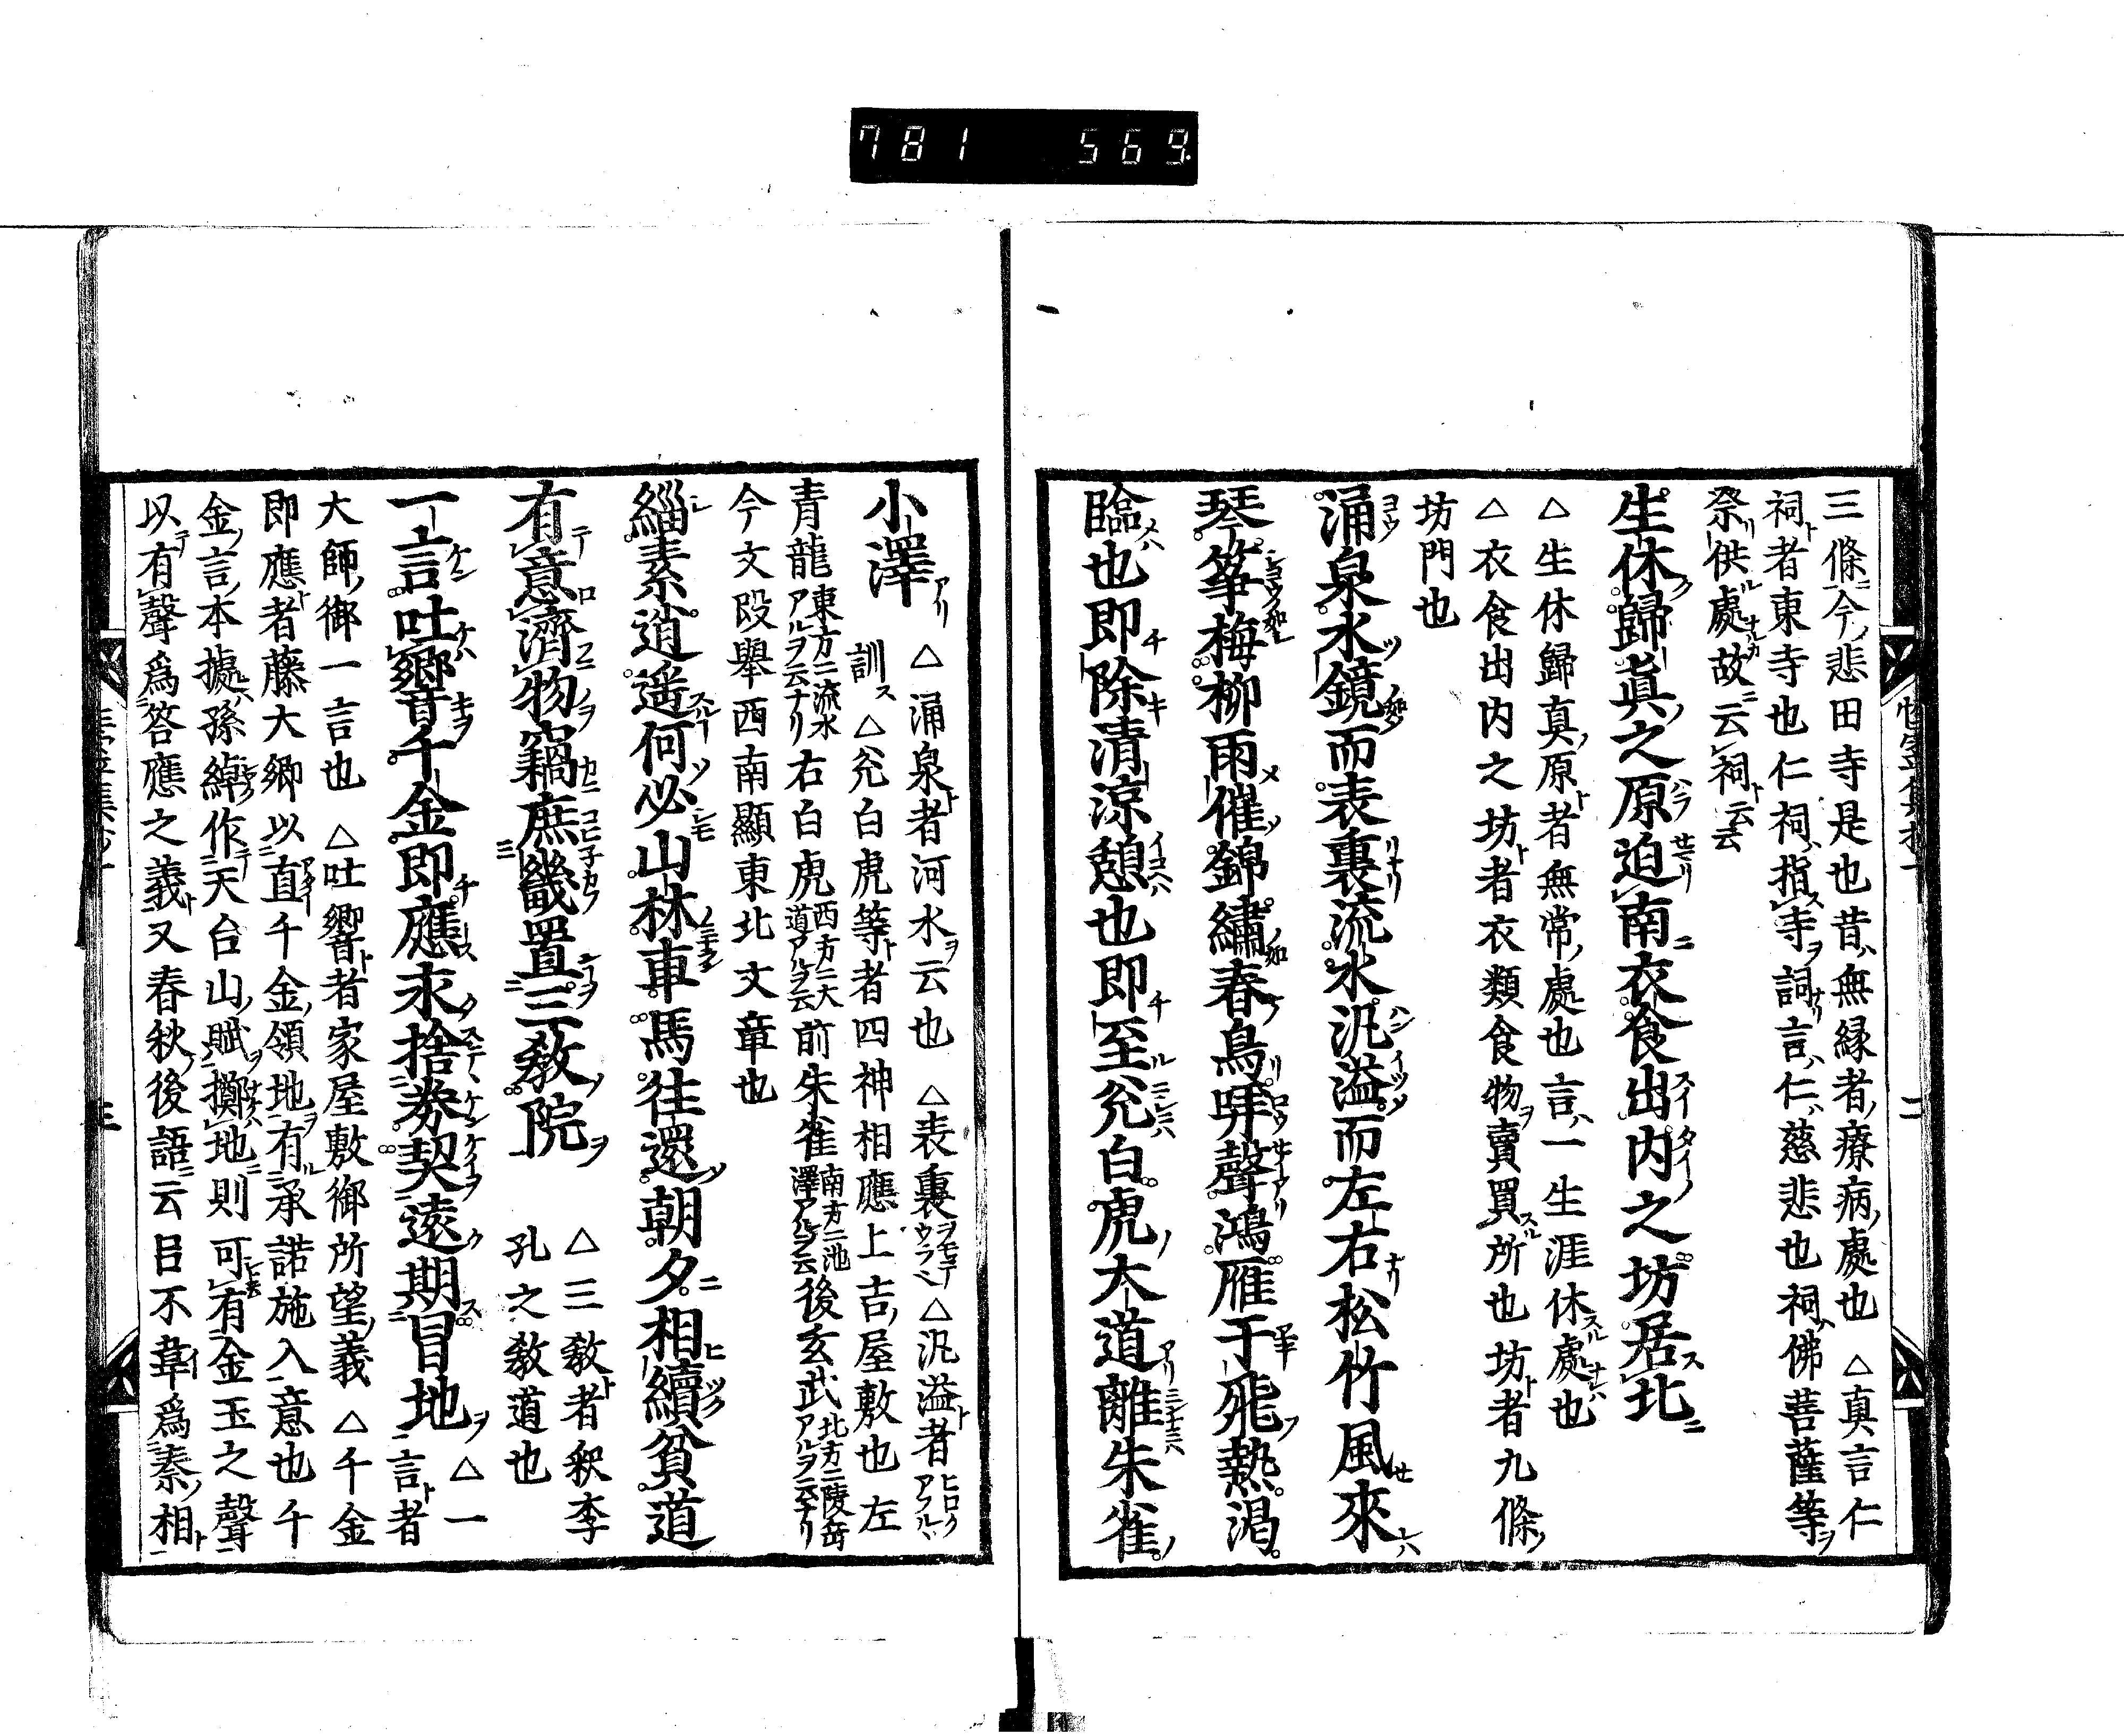 781 569
三條今悲田寺是也昔無縁者療病處也 △真言仁
祠者東寺也仁祠指寺詞言仁慈悲也祠佛菩薩等
祭供處故云祠云云
生休歸眞之原迫南衣食出内之坊居北
△生休歸真原者無常處也言一生涯休處也
△衣食出内之坊者衣類食物賣買所也坊者九條
坊門也
涌泉水鏡而表裏流水汎溢而左右松竹風來
琴箏梅柳雨催錦繡春鳥哢聲鴻雁于飛熱渇
臨也即除清涼憩也即至兊白虎大道離朱雀
小澤 △涌泉者河水云也 △表裏 △汎溢者
訓 △兊白虎等者四神相應上吉屋敷也左
青龍東方ニ流水アルヲ云ナリ右白虎西方ニ大道アルヲ云前朱雀南方ニ池澤アルヲ云後玄武北方ニ陵岳アルヲ云ナリ
今文段舉西南顯東北文章也
緇素逍遥何必山林車馬往還朝夕相續貧道
有意濟物竊庶幾置三教院 △三教者釈李
孔之教道也
一言吐響千金即應永捨券契遠期冐地 △一言者
大師御一言也 △吐響者家屋敷御所望義 △千金
即應者藤大卿以直千金領地有承諾施入意也千
金言本據孫綽作天台山賦擲地則可有金玉之聲
以有聲爲答應之義又春秋後語云呂不韋爲秦相